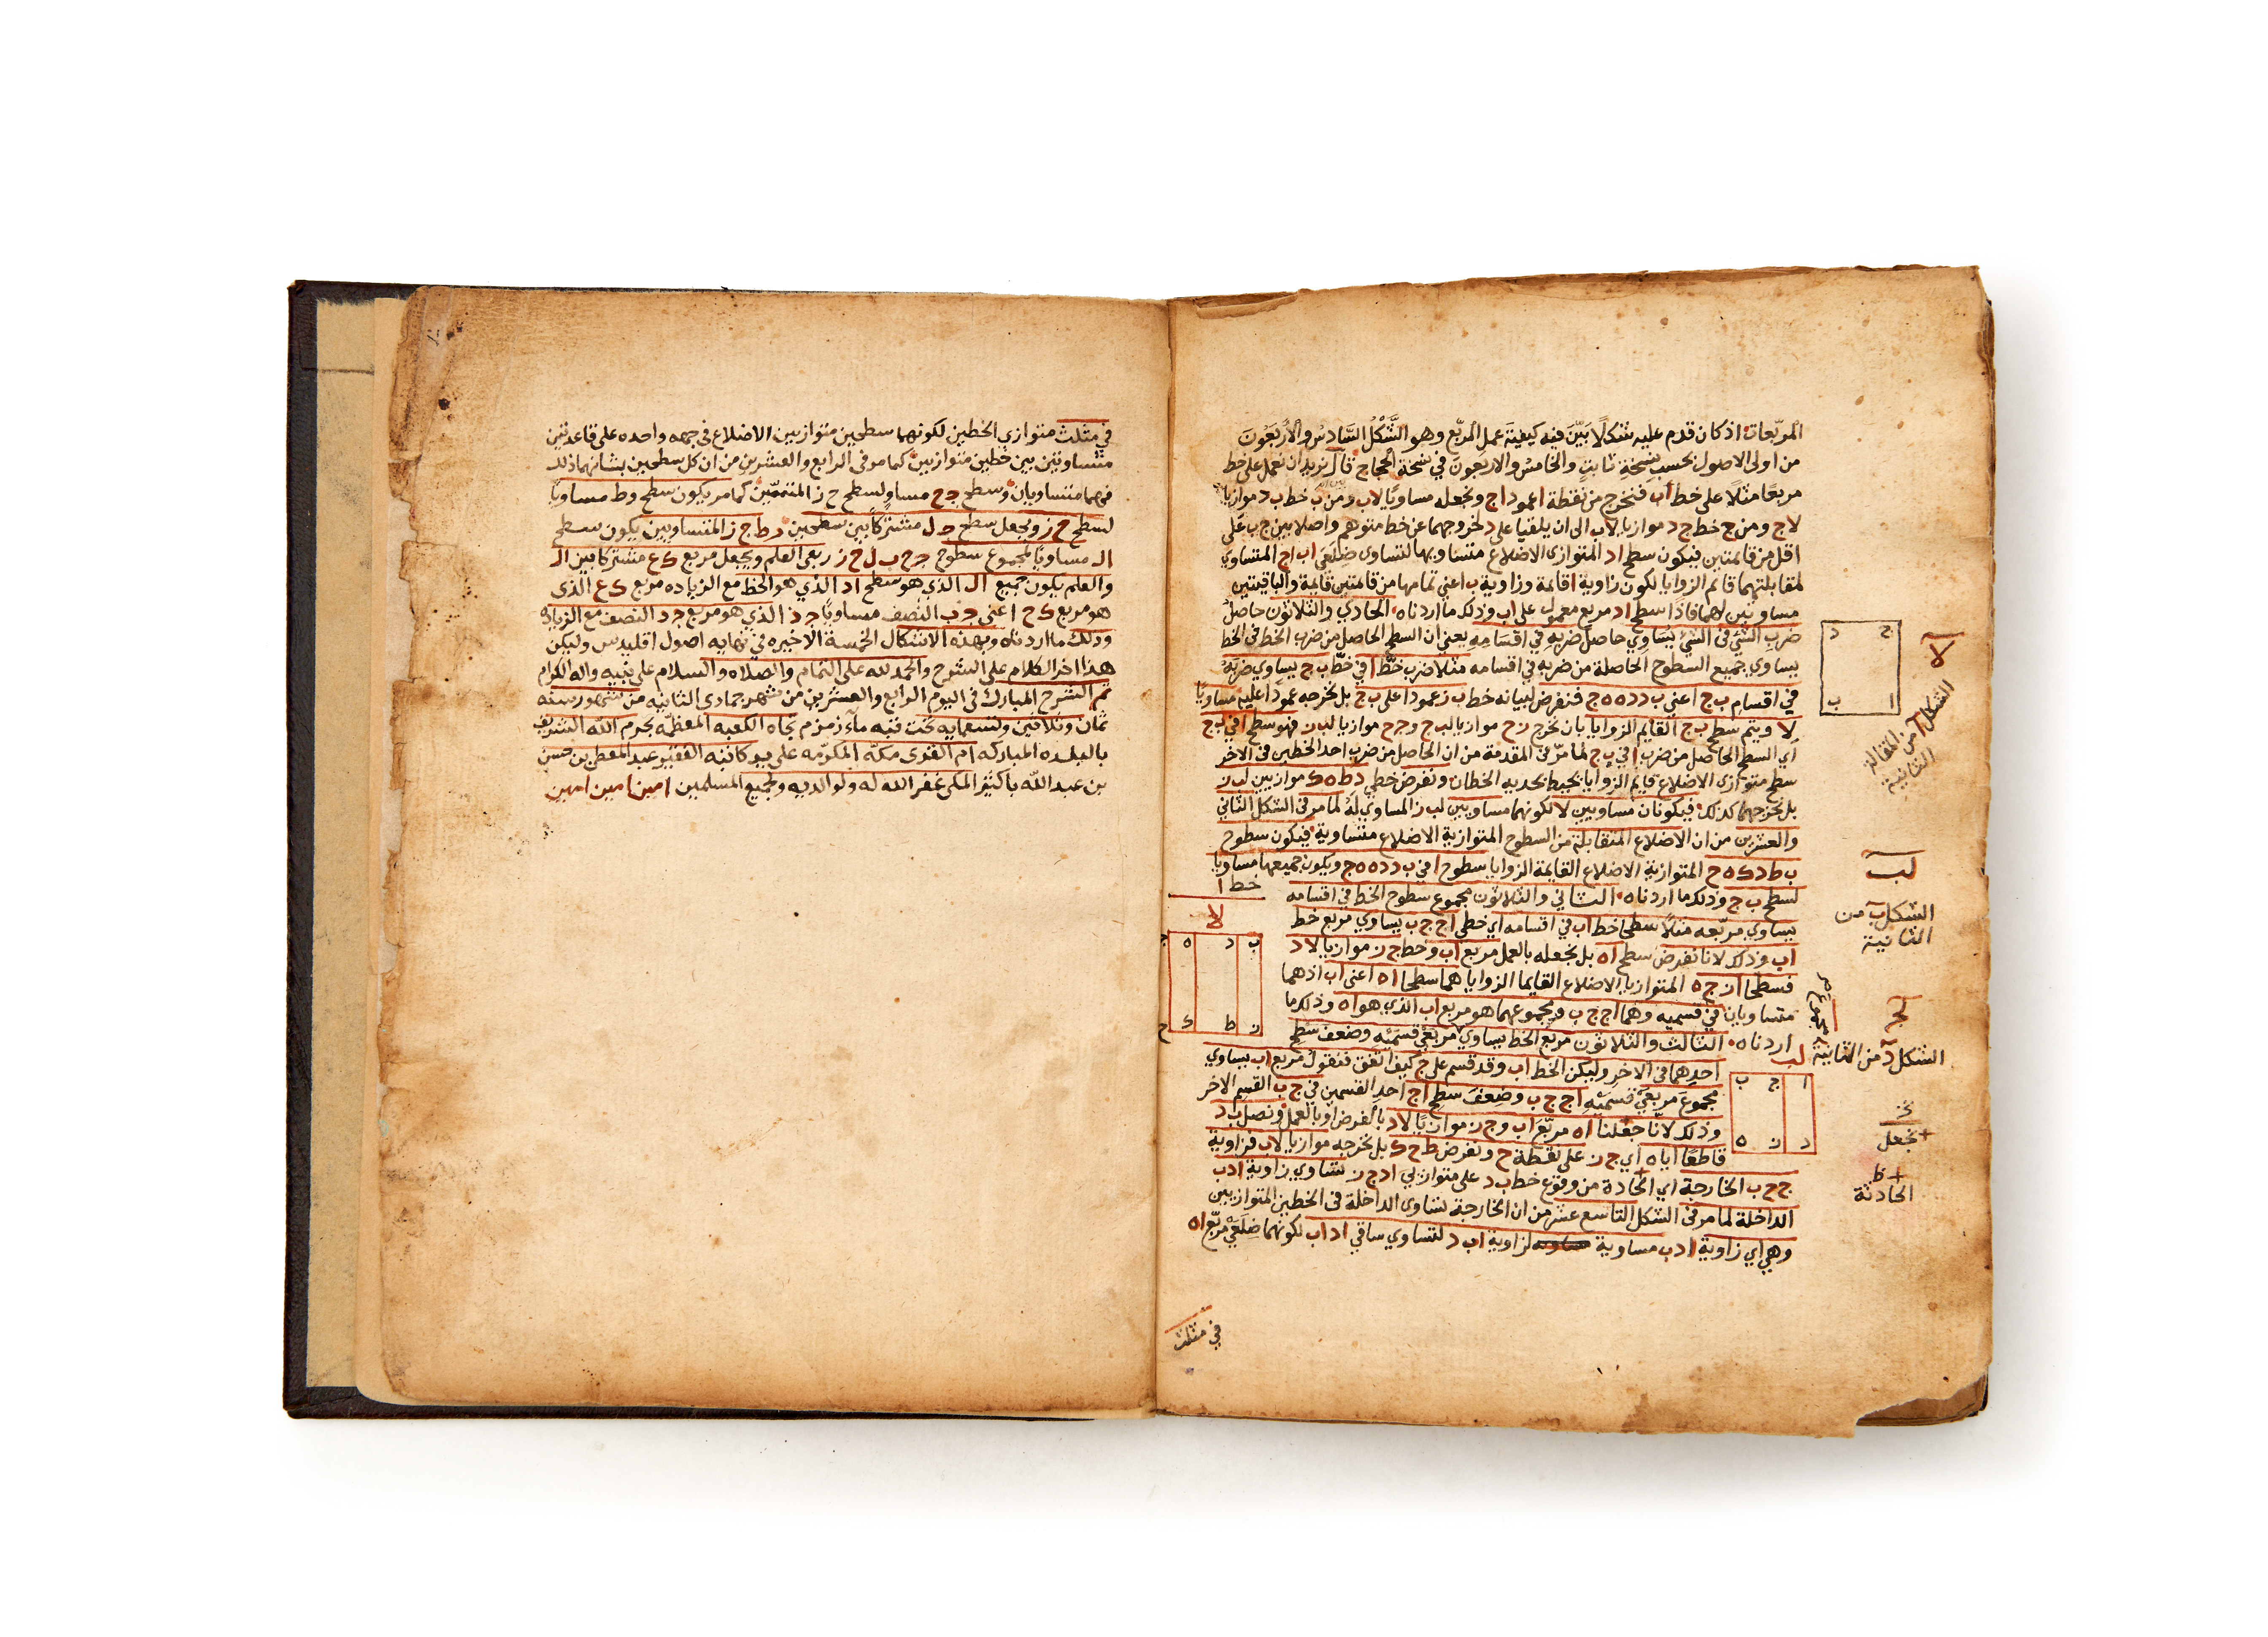 المربعات اذ كان قدم عليه شكلًا بَيّنَ فيه كيفيّة عمل المربّع وهو الشَّكْلُ السَّادسُ والأَربَعُونَ
من اولى الاصول بحسب نسخة ثابت والخامس والاربعون في نسخة الحجاج قال نريد ان نعمل على خط
مربعًا مثلًا على خط اب فنخرج من نقطة ا عمود اج ونجعله مساويًا لاب ومن ب خط ب د موازيا
لاج ومن ج خط ج د موازيا لاب الى ان يلقيا على د لخروجهما عن خط متوهم واصلا بين ج ب على
اقل من قائمتين فيكون سطح اد المتوازى الاضلاع متساويها لتساوى ضلعَي اب اج المتساوي
لمقابلتهما قائم الزوايا لكون زاوية ا قائمة وزاوية ب اعني تمامها من قائمتين قائمة والباقيتين
مساويتين لهما فاذا سطح اد مربع معمول على اب وذلك ما اردناه الحادي والثلاثون حاصل
ضرب الشئ فى الشئ يساوي حاصل ضربه في اقسامه يعني ان السطح الحاصل من ضرب الخط فى الخط
يساوي جميع السطوح الحاصلة من ضربه في اقسامه مثلا ضرب خط ا في خط ب ج يساوي ضربه
في اقسام ب ج اعني ب د د ه ه ج فنفرض لبيانه خط ب ز عمودا على ب ج بل نخرجه عمودًا عليه مساويًا
لا ويتم سطح ب ج القايم الزوايا بان نخرج ز ح موازيا لب ج و ج ح موازيا لب ز فهو سطح ا في ب ج
اي السطح الحاصل من ضرب ا في ب ج لما مرّ فى المقدمة من ان الحاصل من ضرب احد الخطين فى الاخر
سطح متوازى الاضلاع قايم الزوايا يحيط بحديه الخطان ونفرض خطي د ط ه ك موازيين لب ز
بل نخرجهما كذلك فيكونان مساويين لا لكونهما مساويين لب ز المساوي له لما مر فى الشكل الثانى
والعشرين من ان الاضلاع المتقابلة من السطوح المتوازية الاضلاع متساوية فيكون سطوح
ب ط د ك ه ح المتوازية الاضلاع القايمة الزوايا سطوح ا في ب د د ه ه ج ويكون جميعها مساويا
لسطح ب ح وذلك ما اردناه الثاني والثلاثون مجموع سطوح الخط في اقسامه
يساوي مربعه مثلاً سطحا خط اب في اقسامه اي خطي اج ج ب يساوي مربع خط
اب وذلك لانا نفرض سطح اه بل نجعله بالعمل مربع اب وخط ج ز موازيا لاد
فسطحا از ج ه المتوازيا الاضلاع القايما الزوايا هما سطحا اه اعني اب اذ هما
متساويان في قسميه وهما اج ج ب ومجموعهما هو مربع اب الذي هو اه وذلك ما
اردناه الثالث والثلاثون مربع الخط يساوي مربعي قسمَيْه وضعف سطح
احدهما فى الاخر وليكن الخط اب وقد قسم على ج كيف اتفق فنقول مربع اب يساوي
مجموعَ مربعَيْ قسمَيْه اج ج ب وضعفَ سطح اج احد القسمين في ج ب القسم الاخر
وذلك لانا جعلنا اه مربّع اب وج ز موازيًا لاد بالفرض او بالعمل ونصل ب د
قاطعًا اياه اي ج ز على نقطة ح ونفرض ط ح ك بل نخرجه موازيا لاب فزاوية
ج ح ب الخارجة اي الحادة من وقوع خط ب د على متوازيَي اد ج ز تساوي زاوية ادب
الداخلة لما مر فى الشكل التاسع عشر من ان الخارجة تساوى الداخلة فى الخطين المتوازيين
وهي اي زاوية ادب مساوية لزاوية اب د لتساوي ساقي اد اب لكونهما ضلعَيْ مربّع اه
في مثلث
لا
الشكل ا من المقالة
الثانية
ج د
ا ب
لب
الشكل ب من
الثانية
خط ا
لا
ب د ه ج
ز ط ك ح
لج
الشكل د من الثانية
مجموع
لب
ا ج ب
د ز ه
نجعل
الحادثة
في مثلث متوازي الخطين لكونهما سطحين متوازيين الاضلاع فى جهه واحده على قاعدتين
متساويتين بين خطين متوازيين كما مر فى الرابع والعشرين من ان كل سطحين بشانهما ذلك
فهما متساويان وسطح ج ح مساو لسطح ح ز المتممّين كما مر يكون سطح وط مساويًا
لسطح ح ز ونجعل سطح ج ل مشتركًا بين سطحين د ط ج ز المتساويين يكون سطح
ال مساويًا لمجموع سطوح ج ح ب ل ح ز ربعى العلم ونجعل مربع ك ع مشتركا بين ال
والعلم يكون جميع ال الذي هو سطح اد الذي هو الخط مع الزياده مربع ك ع الذى
هو مربع ك ح اعنى ج ب النصف مساويًا ج ذ الذي هو مربع ج د النصف مع الزياده
وذلك ما اردناه وبهذه الاشكال الخمسة الاخيره في نهايه اصول اقليدس وليكن
هذا اخر الكلام على الشرح والحمد لله على التمام والصلاه والسلام على نبيه واله الكرام
تم الشرح المبارك فى اليوم الرابع والعشرين من شهر جمادى الثانيه من شهور سنه
ثمان وثلاثين وتسعمايه تحت قبه ماء زمزم تجاه الكعبه المعظمه بحرم الله الشريف
بالبلده المباركه ام القرى مكه المكرمه على يد كاتبه الفقير عبد المعطى بن حسن
بن عبد الله باكثير المكى غفر الله له ولوالديه ولجميع المسلمين امين امين امين